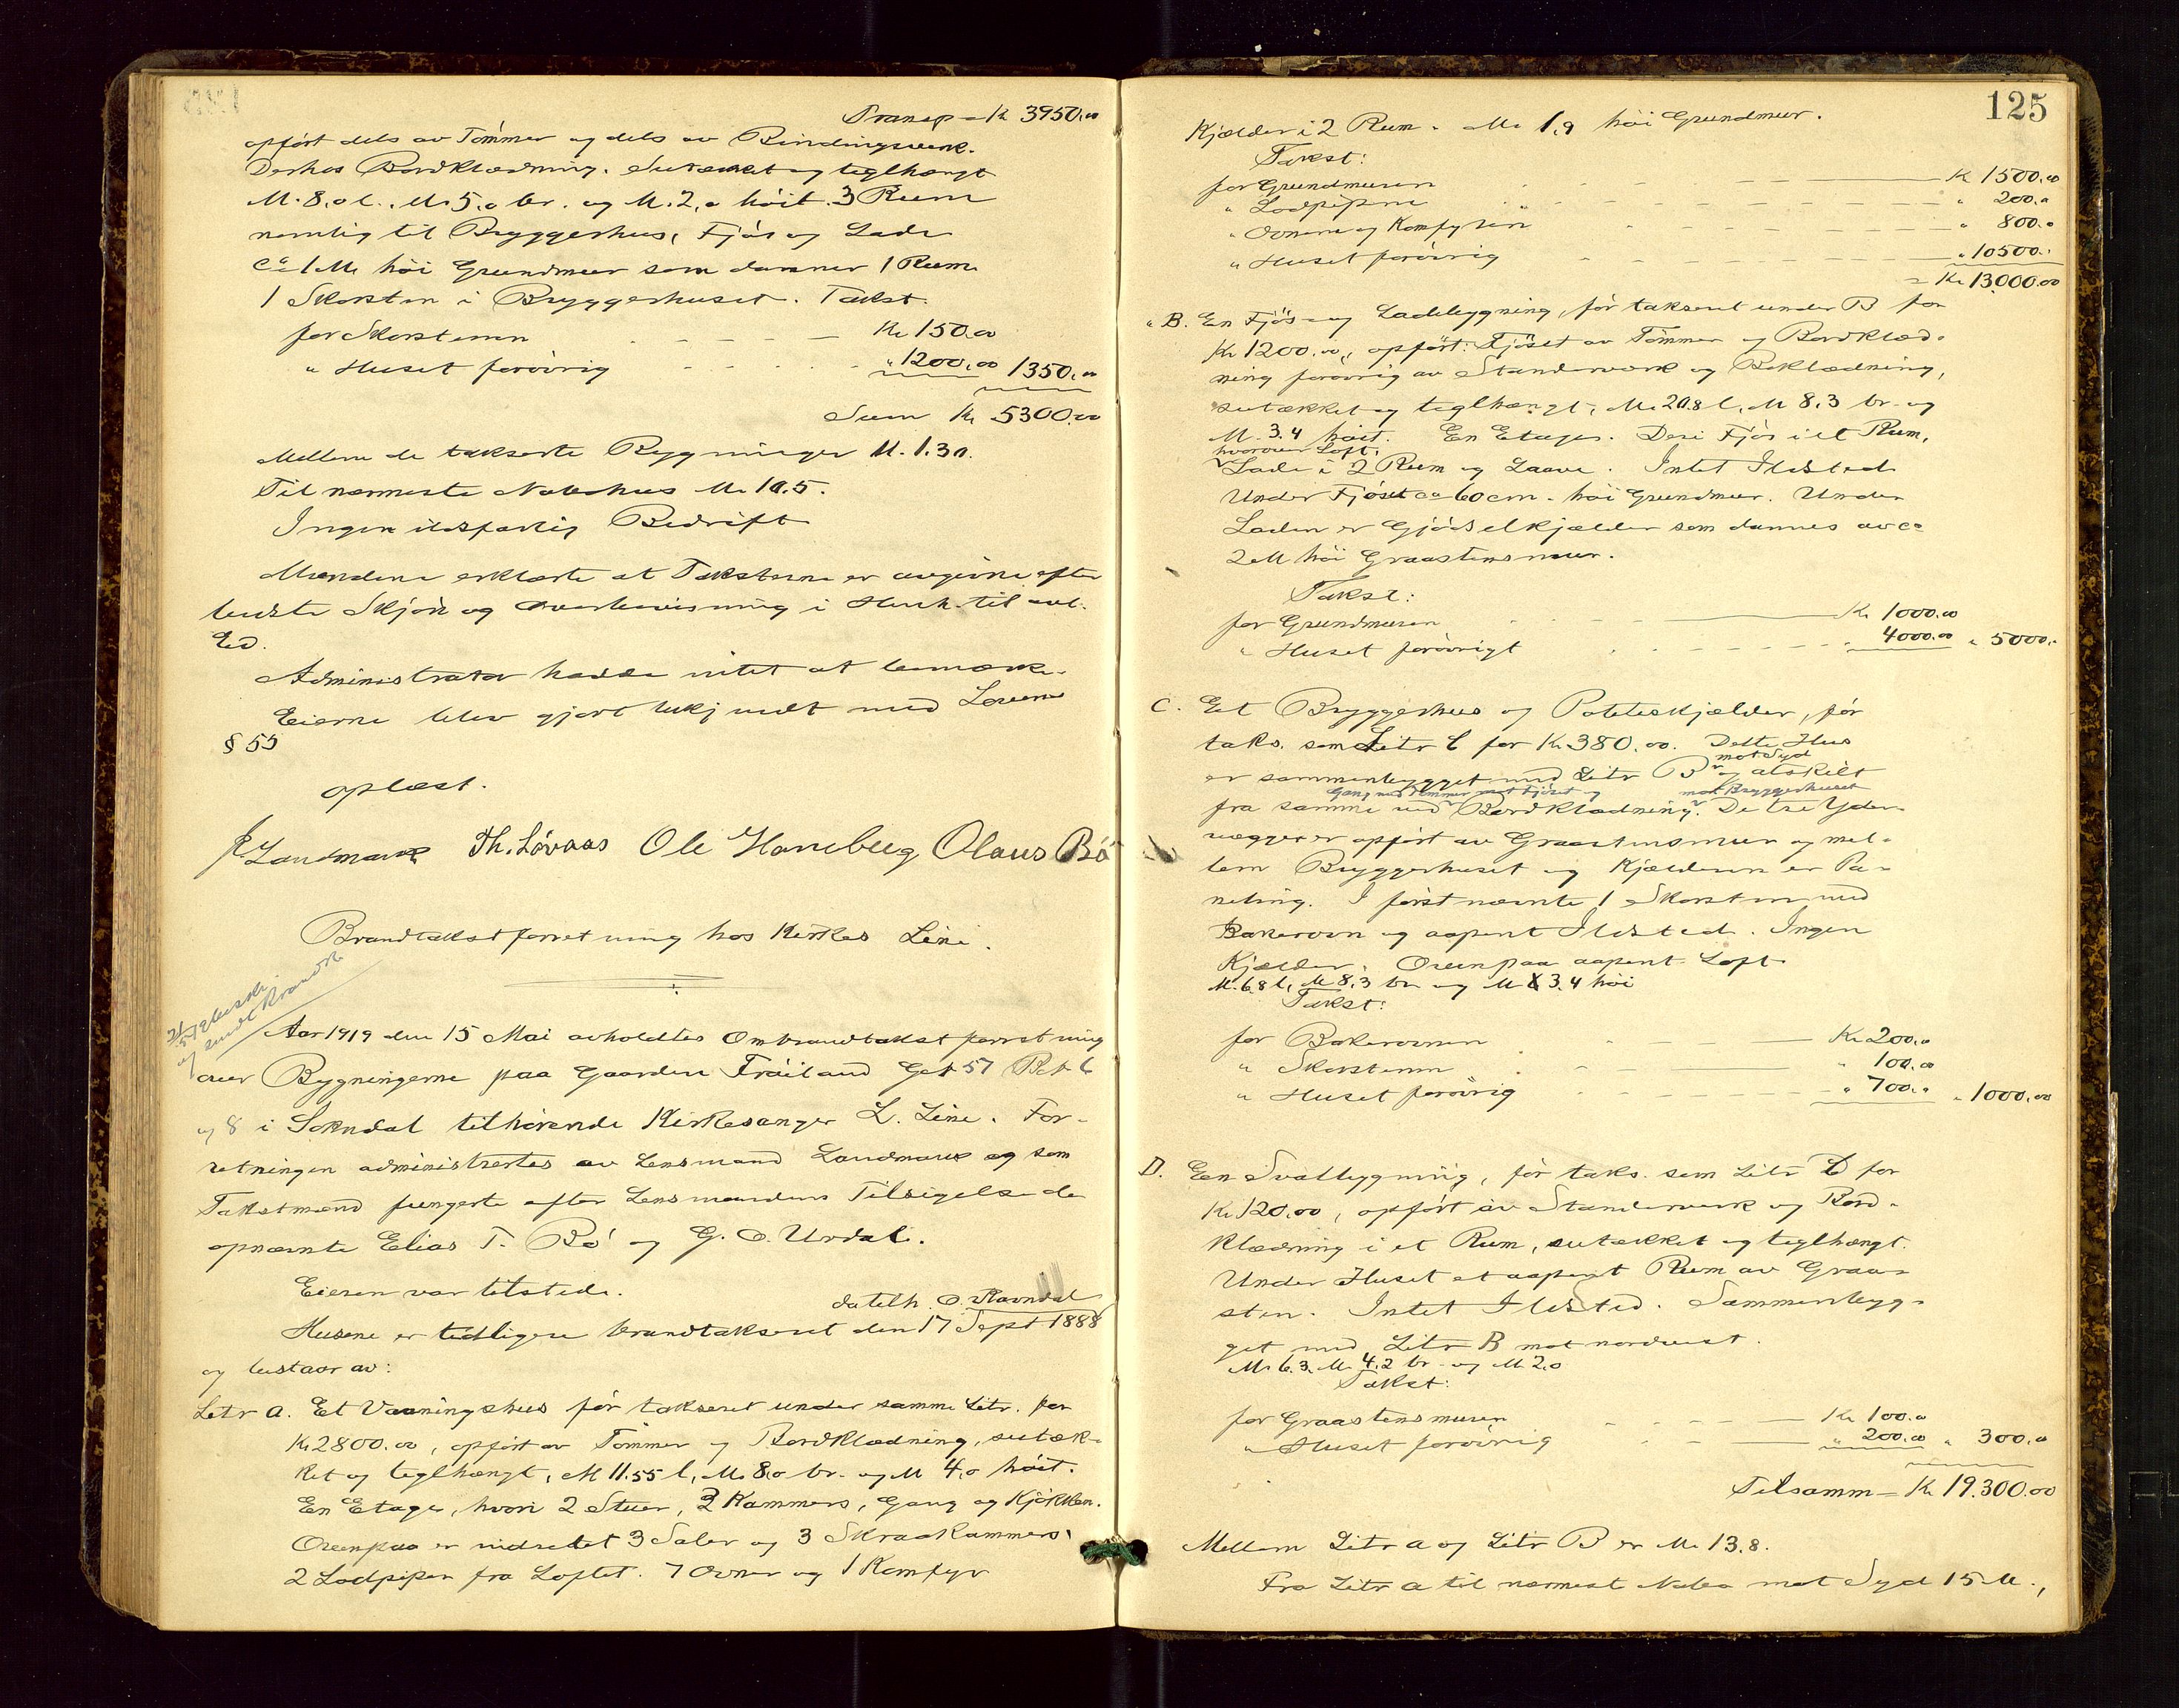 Transp - Kr 3950.00
opført dels av Tømmer og dels av Bindingsverk.
Derhos Bordklædning. Sutækket og teglhængt
M. 8,0 l. M. 5,0 br. og M. 2,0 høit. 3 Rum
nemlig til Bryggerhus, Fjøs og Lade
ca 1 M. høi Grundmur som danner 1 Rum
1 Skorsten i Bryggerhuset. Takst.
for Skorstenen Kr 150.00
" Huset forøvrig " 1200.00 1350.00
Sum Kr. 5300.00
Mellem de takserte Bygninger M. 1.30.
Til nærmeste Nabohus M. 10.5.
Ingen ildsfarlig Bedrift
Mændene erklærte at Taksterne er avgivne efter
bedste Skjøn og Overbevisning i Henh. til avl.
Ed.
Administrator hadde intet at bemærke.
Eierne blev gjort bekjendt med Lovens
§ 55
oplæst.
Landmark Th. Løvaas Ole Haneberg Olaus Bø
Brandtakstforretning hos Kirkes. Line.
Aar 1919 den 15 Mai avholdtes Ombrandtakstforretning
over Bygningerne paa Gaarden Frøiland Gnr 57 Bnr 6
og 8 i Sokndal tilhørende Kirkesanger L. Line. For-
retningen administrertes av Lensmand Landmark og som
Takstmænd fungerte efter Lensmandens Tilsigelse de
opnævnte Elias T. Bø og G. O. Urdal.
Eieren var tilstede.
datilh. O. Ravndal
Husene er tidligere brandtakseret den 17 Sept 1888
og bestaar av:
Litr a. Et Vaaningshus før takseret under samme Litr. for
Kr 2800.00, opført av Tømmer og Bordklædning, sutæk-
ket og teglhængt, M 11.55 l, M. 8,0 br. og M 4,0 høit.
En Etage, hvori 2 Stuer, 2 Kammers, Gang og Kjøkken.
Ovenpaa er indredet 3 Saler og 3 Skraakammers.
2 Lodpiper fra Loftet. 7 Ovner og 1 Komfyr
125
Kjælder i 2 Rum. M. 1,9 høi Grundmur.
Takst:
for Grundmuren Kr 1500.00
" Lodpiperne " 200.0
" Ovnene og Komfyren " 800.0
" Huset forøvrig " 10500.
= Kr 13000.00
" B. En Fjøs- og Ladebygning, før takseret under B for
Kr 1200.00, opført: Fjøset av Tømmer og Bordklæd-
ning forøvrig av Standerværk og Beklædning,
sutækket og teglhængt, M. 20.8 l, M 8.3 br. og
M. 3.4 høit. En Etage. Deri Fjøs i et Rum,
hvorover Loft,
Lade i 2 Rum og Laave. Intet Ildsted
Under Fjøset ca 60 cm. høi Grundmur. Under
Laden er Gjødselkjælder som dannes av ca
2 M høi Graastensmur.
Takst:
for Grundmuren Kr 1000.00
" Huset forøvrigt " 4000.00 " 5000.
C. Et Bryggerhus og Poteteskjælder, før
taks. som Litr C for Kr. 380.00. Dette Hus
mot Syd
er sammenbygget med Litr B og atskilt
Gang med Tømmer mot Fjøset og mot Bryggerhuset
fra samme med Bordklædning. De tre Yder-
vægger er opført av Graastensmur og mel-
lem Bryggerhuset og Kjælderen er Pa-
neling. I førstnævnte 1 Skorsten med
Bakerovn og aapent Ildsted. Ingen
Kjælder. Ovenpaa aapent Loft
M. 6.8 l, M 8.3 br og M 3.4 høi
Takst:
for Bakerovnen Kr 200.0
" Skorstenen " 100.00
" Huset forøvrig " 700.0 " 1000.00
D. En Svalbygning, før taks. som Litr D for
Kr 120.00, opført av Standerverk og Bord-
klædning i et Rum, sutækket og teglhængt.
Under Huset et aapent Rum av Graa-
sten. Intet Ildsted. Sammenbyg-
get med Litr B mot nordvest.
M. 6.3. M. 4.2 br. og M 2.0
Takst:
for Graastensmuren Kr 100.0
" Huset forøvrig " 200.00 " 300.0
Tilsamm = Kr 19.300.00
Mellem Litr a og Litr B er M. 13.8.
Fra Litr a til nærmest Nabo mot Syd 15 M.,